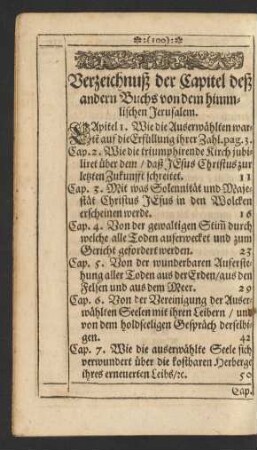 :(100):
Verzeichnuß der Capitel deß
andern Buchs von dem himm-
lischen Jerusalem.
CApitel 1. Wie die Auserwählten war-
tet auf die Erfüllung ihrer Zahl. pag. 3.
Cap. 2. Wie die triumphirende Kirch jubi-
liret über dem / daß JEsus Christus zur
letzten Zukunfft schreitet. 11
Cap. 3. Mit was Solennität und Maje-
stät Christus JEsus in den Wolcken
erscheinen werde. 16
Cap. 4. Von der gewaltigen Stim̃ durch
welche alle Toden auferwecket und zum
Gericht gefordert werden. 23
Cap. 5. Von der wunderbaren Auferste-
hung aller Toden aus der Erden / aus den
Felsen und aus dem Meer. 29
Cap. 6. Von der Vereinigung der Auser-
wählten Seelen mit ihren Leibern / und
von dem holdseeligen Gespräch derselbi-
gen. 42
Cap. 7. Wie die auserwählte Seele sich
verwundert über die kostbaren Herberge
ihres erneuerten Leibs / ꝛc. 50
Cap.